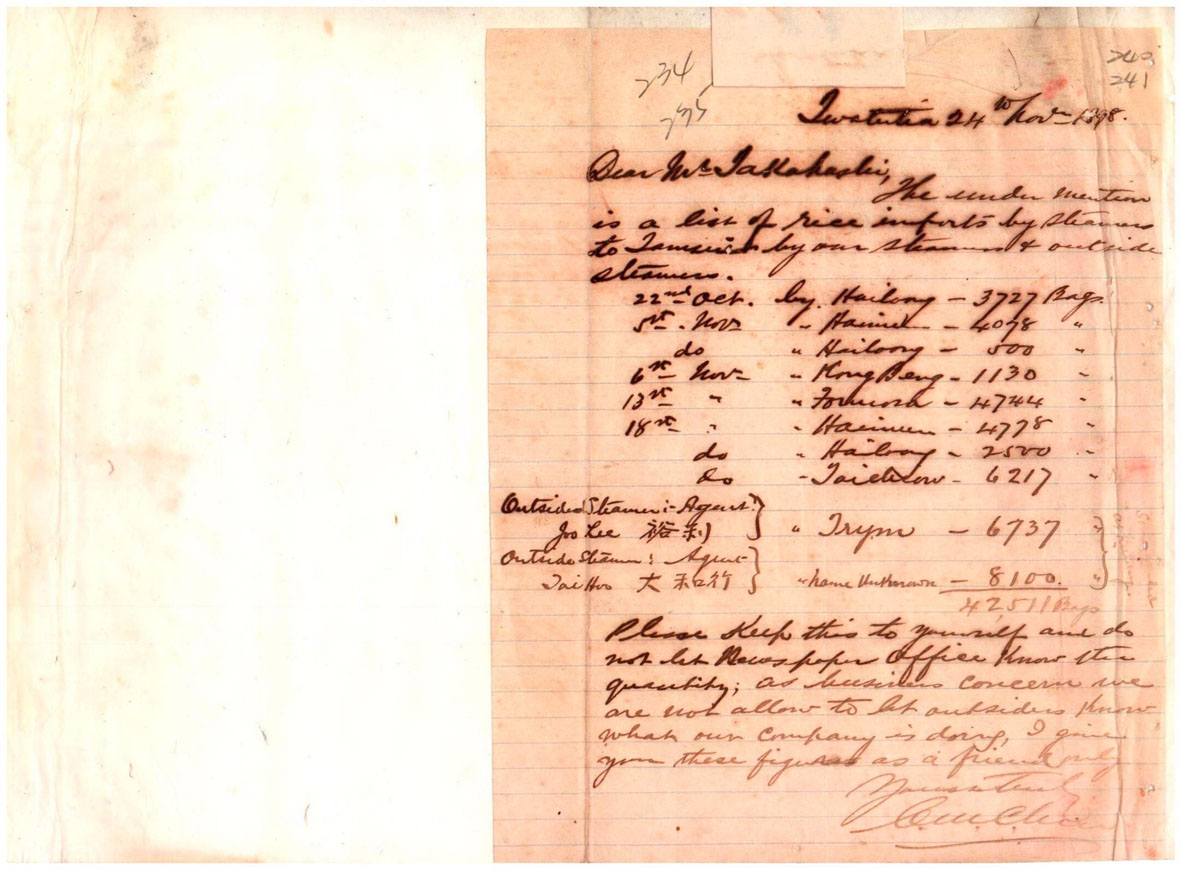 234
235
240
241
Twatutia 24th Novr 1898.
Dear Mr. Takahashi,
The under mention
is a list of rice imports by steamers
to Tamsui by our steamers & outside
steamers.
22nd Oct. by Hailoong – 3727 Bags
5th. Novr " Haimun – 4078 "
do " Hailoong – 500 "
6th Novr " KongBeng – 1130 "
13th " " Formosa – 4744 "
18th " " Haimun – 4778 "
do " Hailoong – 2500 "
do " Taichow – 6217 "
Outside Steamer:- Agent:
Joo Lee 裕利 } " Trym – 6737 "
Outside Steamer: Agent
Tai Hoo 大和行 } " name Unknown – 8100. "
42511 Bags
Please Keep this to yourself and do
not let Newspaper Office Know the
quantity; as business concern we
are not allow to let outsiders Know
what our company is doing, I give
you these figures as a friend only
Yours truly